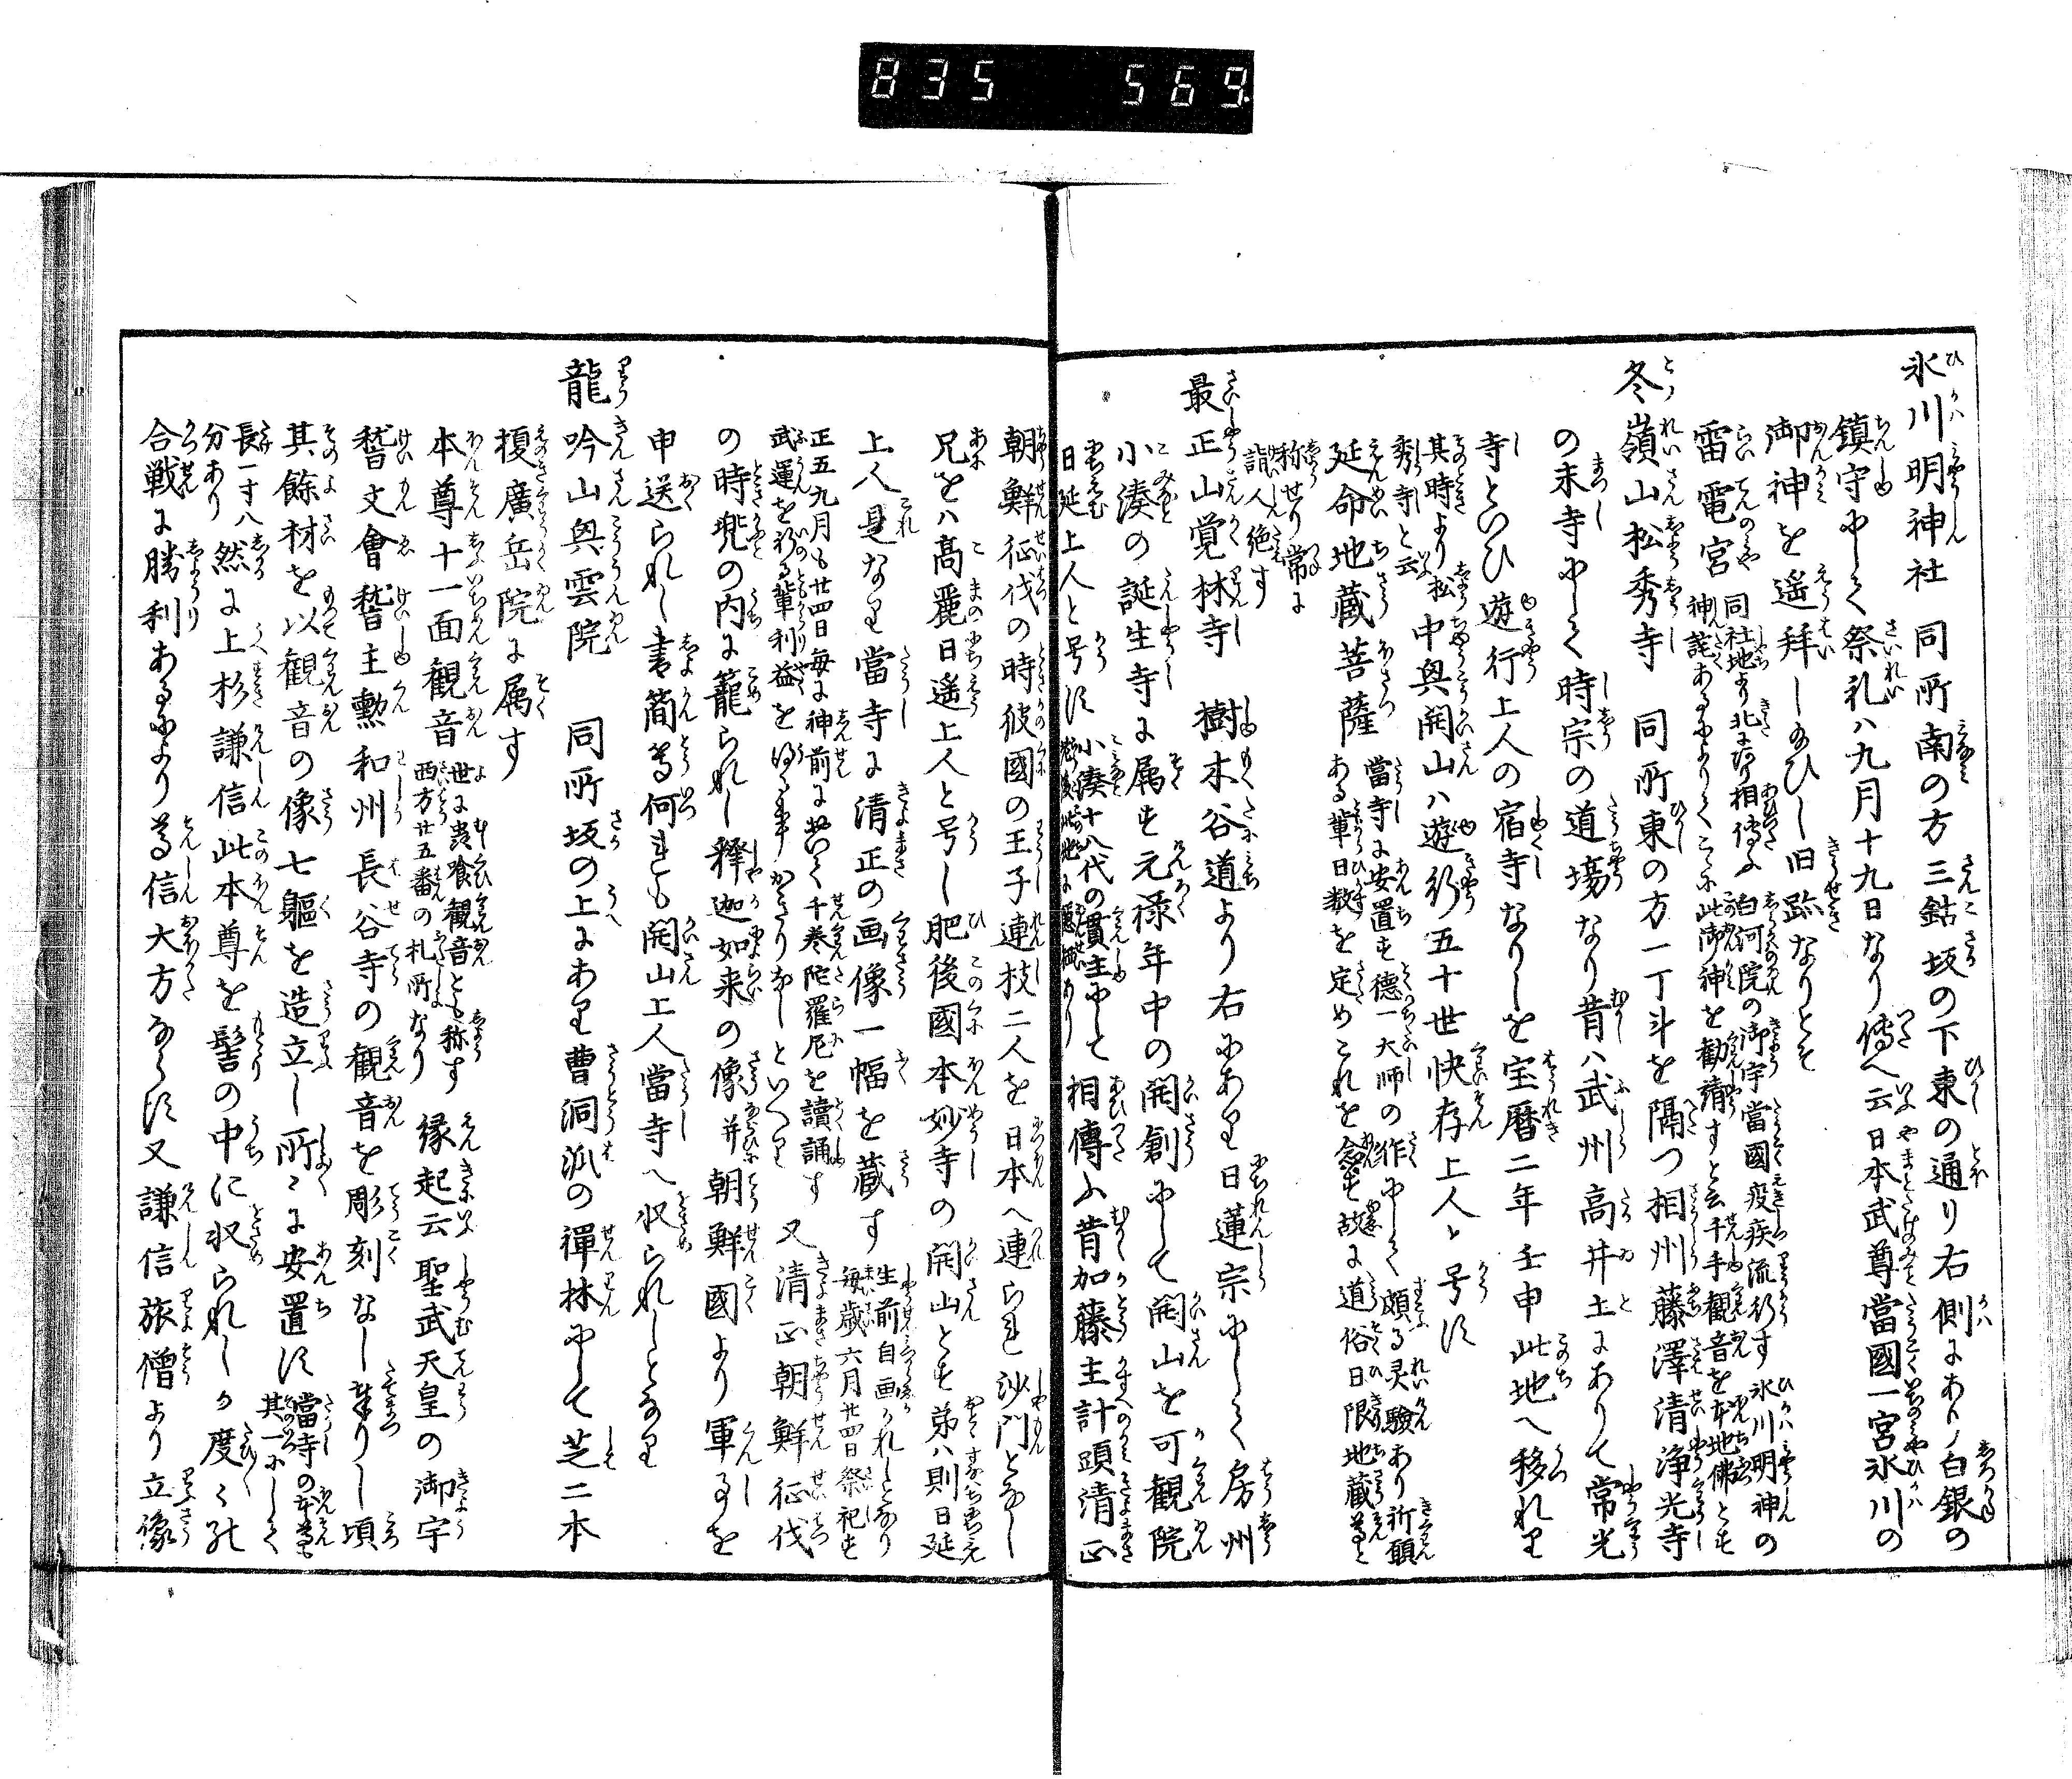 835 569
氷川明神社 同所南の方三鈷坂の下東の通り右側にあり白銀の
鎮守にして祭礼ハ九月十九日なり傳へ云日本武尊當國一宮氷川の
御神を遥拝し給ひし旧跡なりとそ
雷電宮 同社地より北にあり相傳ふ白河院の御宇當國疫疾流行す氷川明神の
神詫あるによりてこゝに此御神を勧請すと云千手観音を本地佛とす
冬嶺山松秀寺 同所東の方一丁斗を隔つ相州藤澤清浄光寺
の末寺にして時宗の道場なり昔ハ武州高井土にありて常光
寺といひ遊行上人の宿寺なりしを宝暦二年壬申此地へ移れり
其時より松秀寺と云 中興開山ハ遊行五十世快存上人と号す
延命地蔵菩薩 當寺に安置す徳一大師の作にして頗る灵驗あり祈願
ある輩日数を定めこれを念す故に道俗日限地蔵尊と
称せり常に
詣人絶す
最正山覚林寺 樹木谷道より右にあり日蓮宗にして房州
小湊の誕生寺に属す元禄年中の開創にして開山を可観院
日延上人と号す 小湊十八代の貫主にて
相傳ふ昔加藤主計頭清正
朝鮮征伐の時彼國の王子連枝二人を日本へ連られ沙門となし
兄をハ高麗日遥上人と号し肥後國本妙寺の開山とす弟ハ則日延
上人是なり當寺に清正の画像一幅を蔵す 生前自画かれしとなり
毎歳六月廿四日祭祀す
正五九月も廿四日毎に神前において千巻陀羅尼を讀誦す
武運を祈る輩利益を得る事かきりなしといへり 又清正朝鮮征伐
の時兜の内に籠られし釋迦如来の像并朝鮮國より軍事を
申送られし書簡等何れも開山上人當寺へ収られしとなり
龍吟山興雲院 同所坂の上にあり曹洞派の禅林にして芝二本
榎廣岳院に属す
本尊十一面観音 世に蟲喰観音とも称す
西方廿五番の札所なり 縁起云聖武天皇の御宇
誓文會誓主勲和州長谷寺の観音を彫刻なし奉りし頃
其餘材を以観音の像七軀を造立し所々に安置す 當寺の本尊も
其一にして
長一寸八
分あり 然に上杉謙信此本尊を髻の中に収られしか度々の
合戦に勝利あるにより尊信大方ならす又謙信旅僧より立像